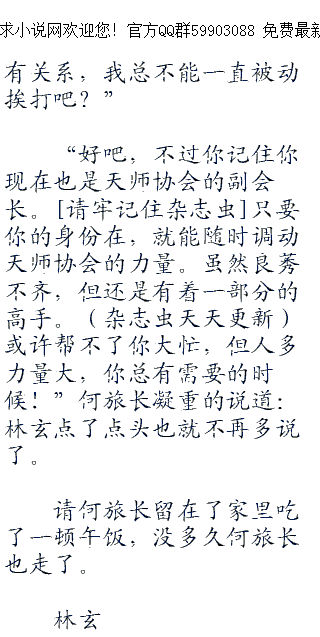 求小说网欢迎您！官方QQ群59903088 免费最新
有关系，我总不能一直被动
挨打吧？”
“好吧，不过你记住你
现在也是天师协会的副会
长。[请牢记住杂志虫]只要
你的身份在，就能随时调动
天师协会的力量。虽然良莠
不齐，但还是有着一部分的
高手。（杂志虫天天更新）
或许帮不了你大忙，但人多
力量大，你总有需要的时
候！”何旅长凝重的说道：
林玄点了点头也就不再多说
了。
请何旅长留在了家里吃
了一顿午饭，没多久何旅长
也走了。
林玄